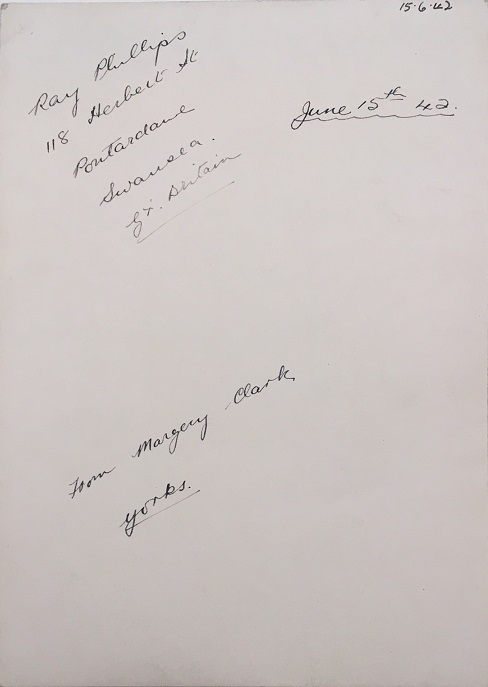 15·6·42
Ray Phillips
118 Herbert St
Pontardawe
Swansea.
Gt. Britain
June 15th 42.
From Margery Clark
Yorks.